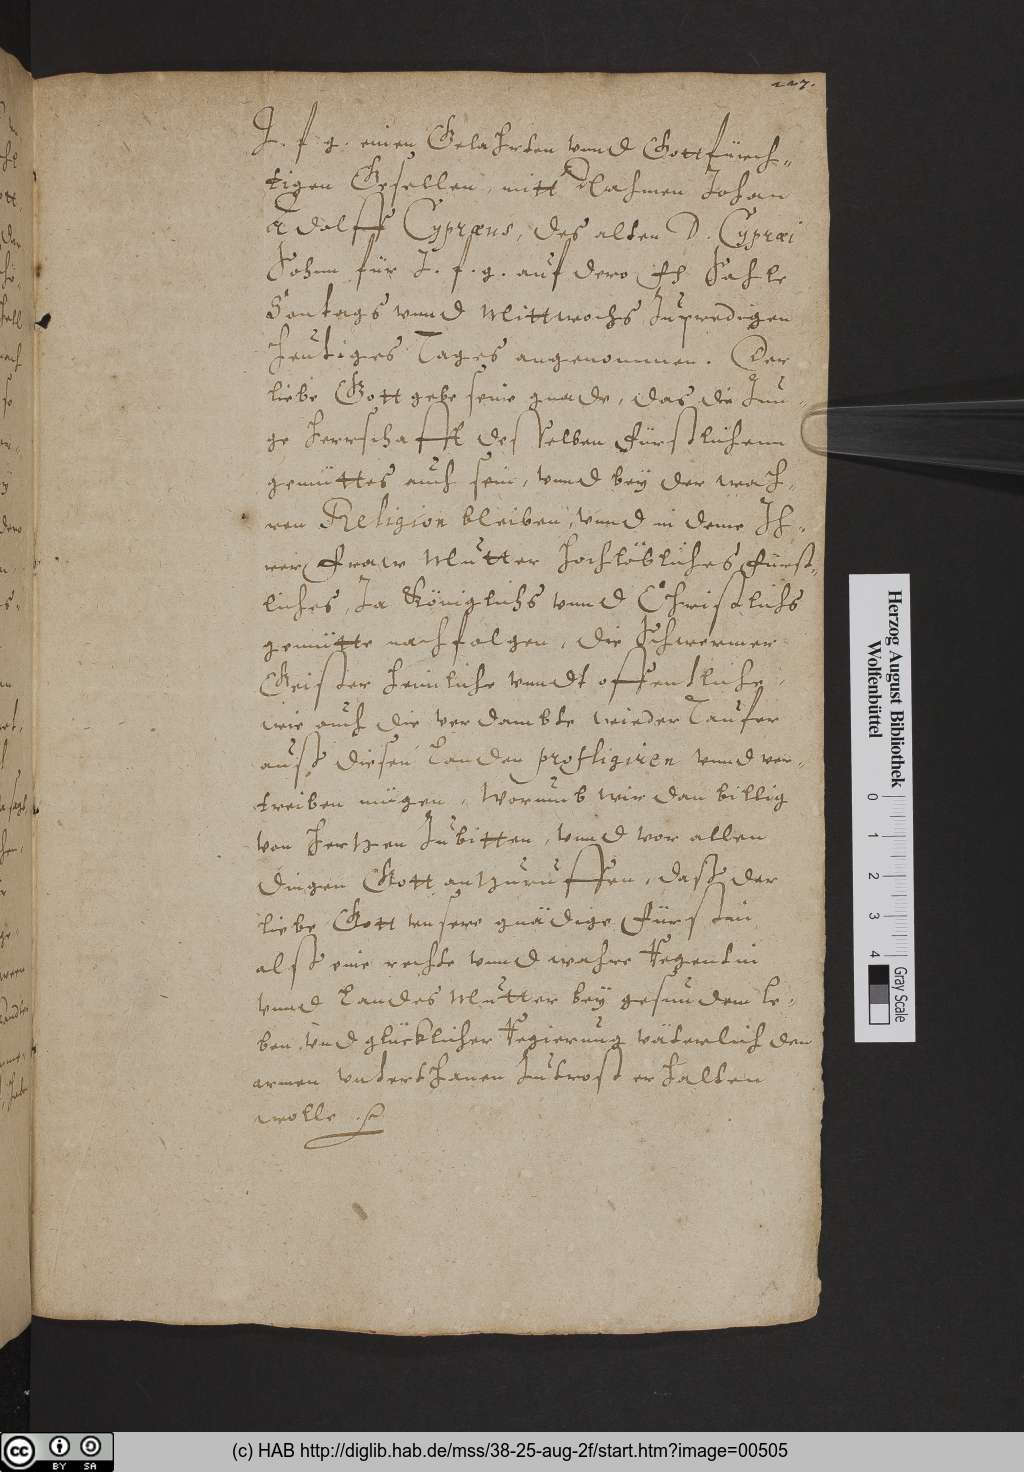 227.
I. f. g. einen Gelahrten vnnd Gottfürch-
tigen Gesellen, mitt Nahmen Johan
Adolff Cypræus, des alten D Cypræi
Sohnn für I. f. g. auf dero Eß Sahle
Sontags vnnd Mittwochs Zupredigen
heutiges Tages angenommen. Der
liebe Gott gebe seine gnade, das die Jun-
ge herrschafft desselben Fürstlichenn
gemüttes auch sein, vnnd bey der wah-
ren Religion bleiben, vnnd in deme Ih-
rer Fraw Mutter hochlöbliches Fürst-
liches, Ja Königlichs vnnd Christlichs
gemütte nachfolgen, die Schwermer
Geister heimliche vnndt offentliche,
wie auch die verdambte wieder Taufer
auß diesen Landen profligiren vnnd ver-
treiben mügen, Worumb wir dan billig
von hertzen Zubitten, vnnd vor allen
dingen Gott antzuruffen, daß der
liebe Gott vnsere gnädige Fürstin
alß eine rechte vnnd wahre Regentin
vnnd Landes Mutter bey gesundem le-
ben vnd glücklicher Regierung väterlich den
armen vnterthanen Zutrost erhalten
wolle.
Herzog August Bibliothek
Wolfenbüttel
0 1 2 3 4
Gray Scale
cc BY SA
(c) HAB http://diglib.hab.de/mss/38-25-aug-2f/start.htm?image=00505